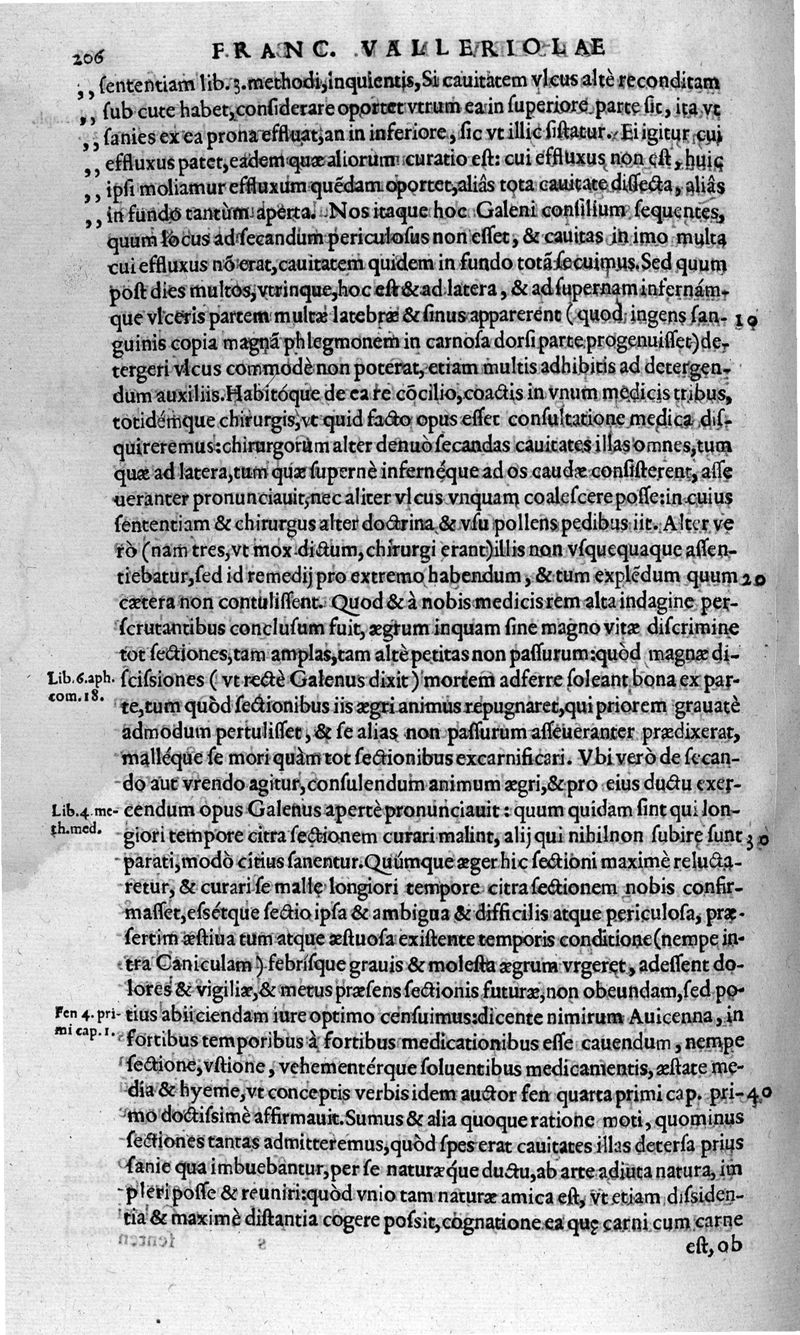 206 FRANC. VALLERIOLAE
,, ſententiam lib. 3. methodi, inquientis, Si cauitatem vlcus altè reconditam
,, ſub cute habet, conſiderare oportet vtrum ea in ſuperiore parte ſit, ita vt
,, ſanies ex ea prona effluat, an in inferiore, ſic vt illic ſiſtatur. Ei igitur cui
,, effluxus patet, eadem quæ aliorum curatio eſt: cui effluxus non eſt, huic
,, ipſi moliamur effluxum quẽdam oportet, aliâs tota cauitate diſſecta, aliâs
,, in fundo tantùm aperta. Nos itaque hoc Galeni conſilium ſequentes,
quum locus ad ſecandum periculoſus non eſſet, & cauitas in imo multa
cui effluxus nõ erat, cauitatem quidem in fundo totã ſecuimus. Sed quum
poſt dies multos, vtrinque, hoc eſt & ad latera, & ad ſupernam infernám-
que vlceris partem multæ latebræ & ſinus apparerent (quod ingens ſan- 10
guinis copia magnã phlegmonem in carnoſa dorſi parte progenuiſſet) de-
tergeri vlcus commodè non poterat, etiam multis adhibitis ad detergen-
dum auxiliis. Habitóque de ea re cõcilio, coactis in vnum medicis tribus,
totidémque chirurgis, vt quid facto opus eſſet conſultatione medica diſ-
quireremus: chirurgorum alter denuò ſecandas cauitates illas omnes, tum
quæ ad latera, tum quæ ſupernè infernéque ad os caudæ conſiſterent, aſſe
ueranter pronunciauit, nec aliter vlcus vnquam coaleſcere poſſe: in cuius
ſententiam & chirurgus alter doctrina & vſu pollens pedibus iit. Alter ve
rò (nam tres, vt mox dictum, chirurgi erant) illis non vſquequaque aſſen-
tiebatur, ſed id remedij pro extremo habendum, & tum explẽdum quum 20
cætera non contuliſſent. Quod & à nobis medicis rem alta indagine per-
ſcrutantibus concluſum fuit, ægrum inquam ſine magno vitæ diſcrimine
tot ſectiones, tam amplas, tam altè petitas non paſſurum: quòd magnæ di-
Lib. 6. aph. ſciſsiones (vt rectè Galenus dixit) mortem adferre ſoleant bona ex par-
com. 18. te, tum quòd ſectionibus iis ægri animus repugnaret, qui priorem grauatè
admodum pertuliſſet, & ſe alias non paſſurum aſſeueranter prædixerat,
malléque ſe mori quàm tot ſectionibus excarnificari. Vbi verò de ſecan-
do aut vrendo agitur, conſulendum animum ægri, & pro eius ductu exer-
Lib. 4. me- cendum opus Galenus apertè pronunciauit: quum quidam ſint qui lon-
th. med. giori tempore citra ſectionem curari malint, alij qui nihil non ſubire ſunt 30
parati, modò citius ſanentur. Quúmque æger hic ſectioni maximè relucta-
retur, & curari ſe malle longiori tempore citra ſectionem nobis confir-
maſſet, eſsétque ſectio ipſa & ambigua & difficilis atque periculoſa, præ-
ſertim æſtiua tum atque æſtuoſa exiſtente temporis conditione (nempe in-
tra Caniculam) febríſque grauis & moleſta ægrum vrgeret, adeſſent do-
lores & vigiliæ, & metus præſens ſectionis futuræ, non obeundam, ſed po-
Fen 4. pri- tius abiiciendam iure optimo cenſuimus: dicente nimirum Auicenna, in
mi cap. 1. fortibus temporibus à fortibus medicationibus eſſe cauendum, nempe
ſectione, vſtione, vehementérque ſoluentibus medicamentis, æſtate me-
dia & hyeme, vt conceptis verbis idem auctor fen quarta primi cap. pri- 40
mo doctiſsimè affirmauit. Sumus & alia quoque ratione moti, quominus
ſectiones tantas admitteremus, quòd ſpes erat cauitates illas deterſa prius
ſanie qua imbuebantur, per ſe naturæque ductu, ab arte adiuta natura, im
pleri poſſe & reuniri: quòd vnio tam naturæ amica eſt, vt etiam diſsiden-
tia & maximè diſtantia cogere poſsit, cognatione ea quę carni cum carne
eſt, ob